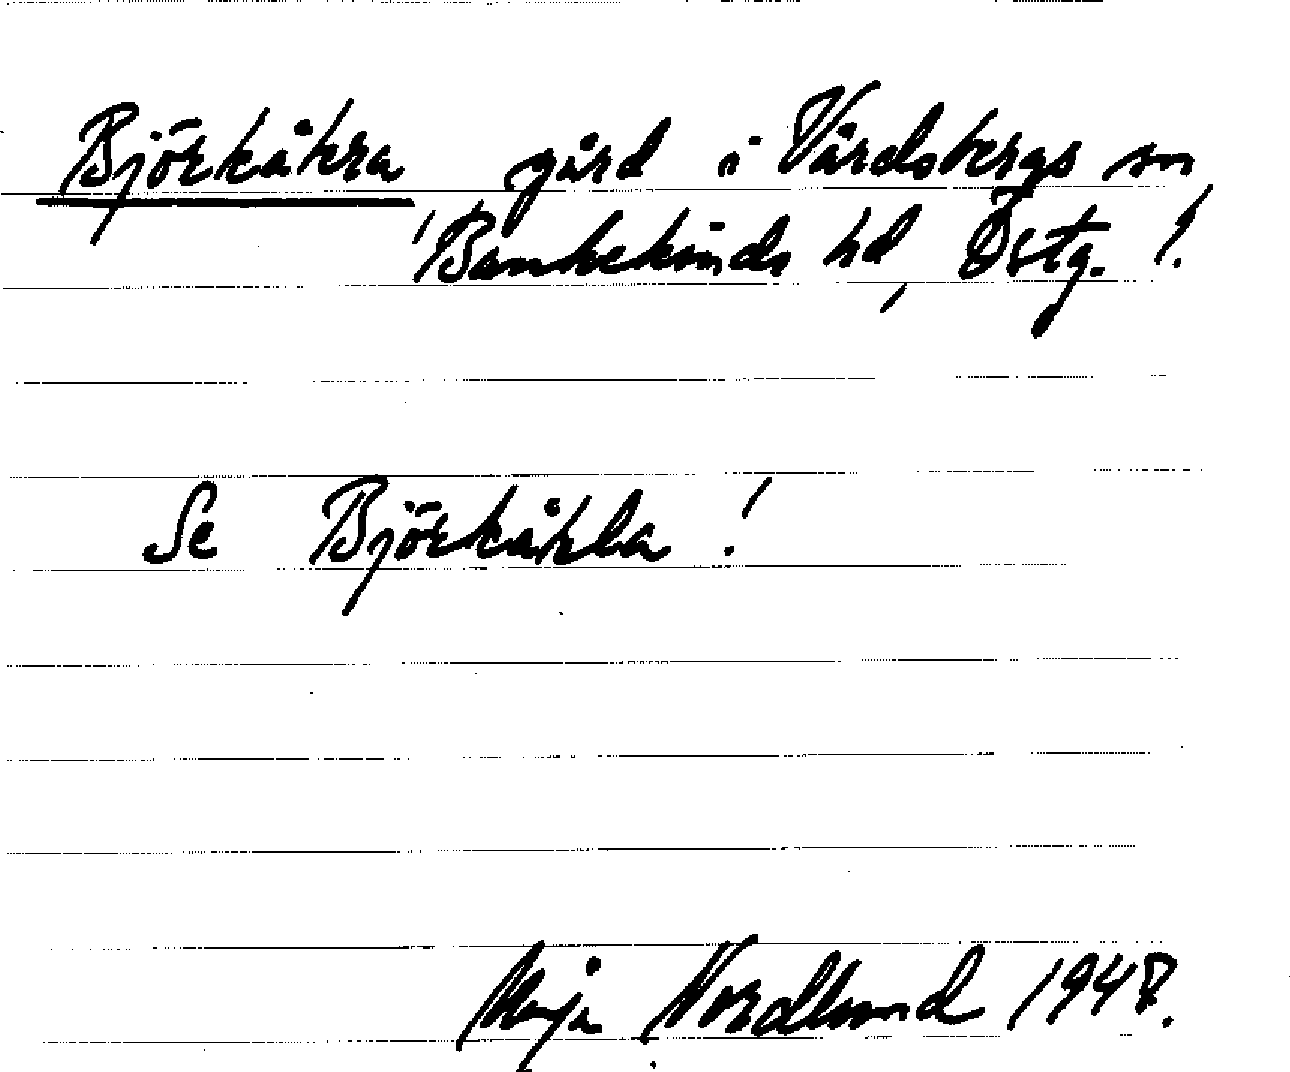 Björkåkra gård i Vårdsbergs sn,
Bankekinds hd, Östg. !.
Se Björkåkla !
Maja Nordlund 1948.